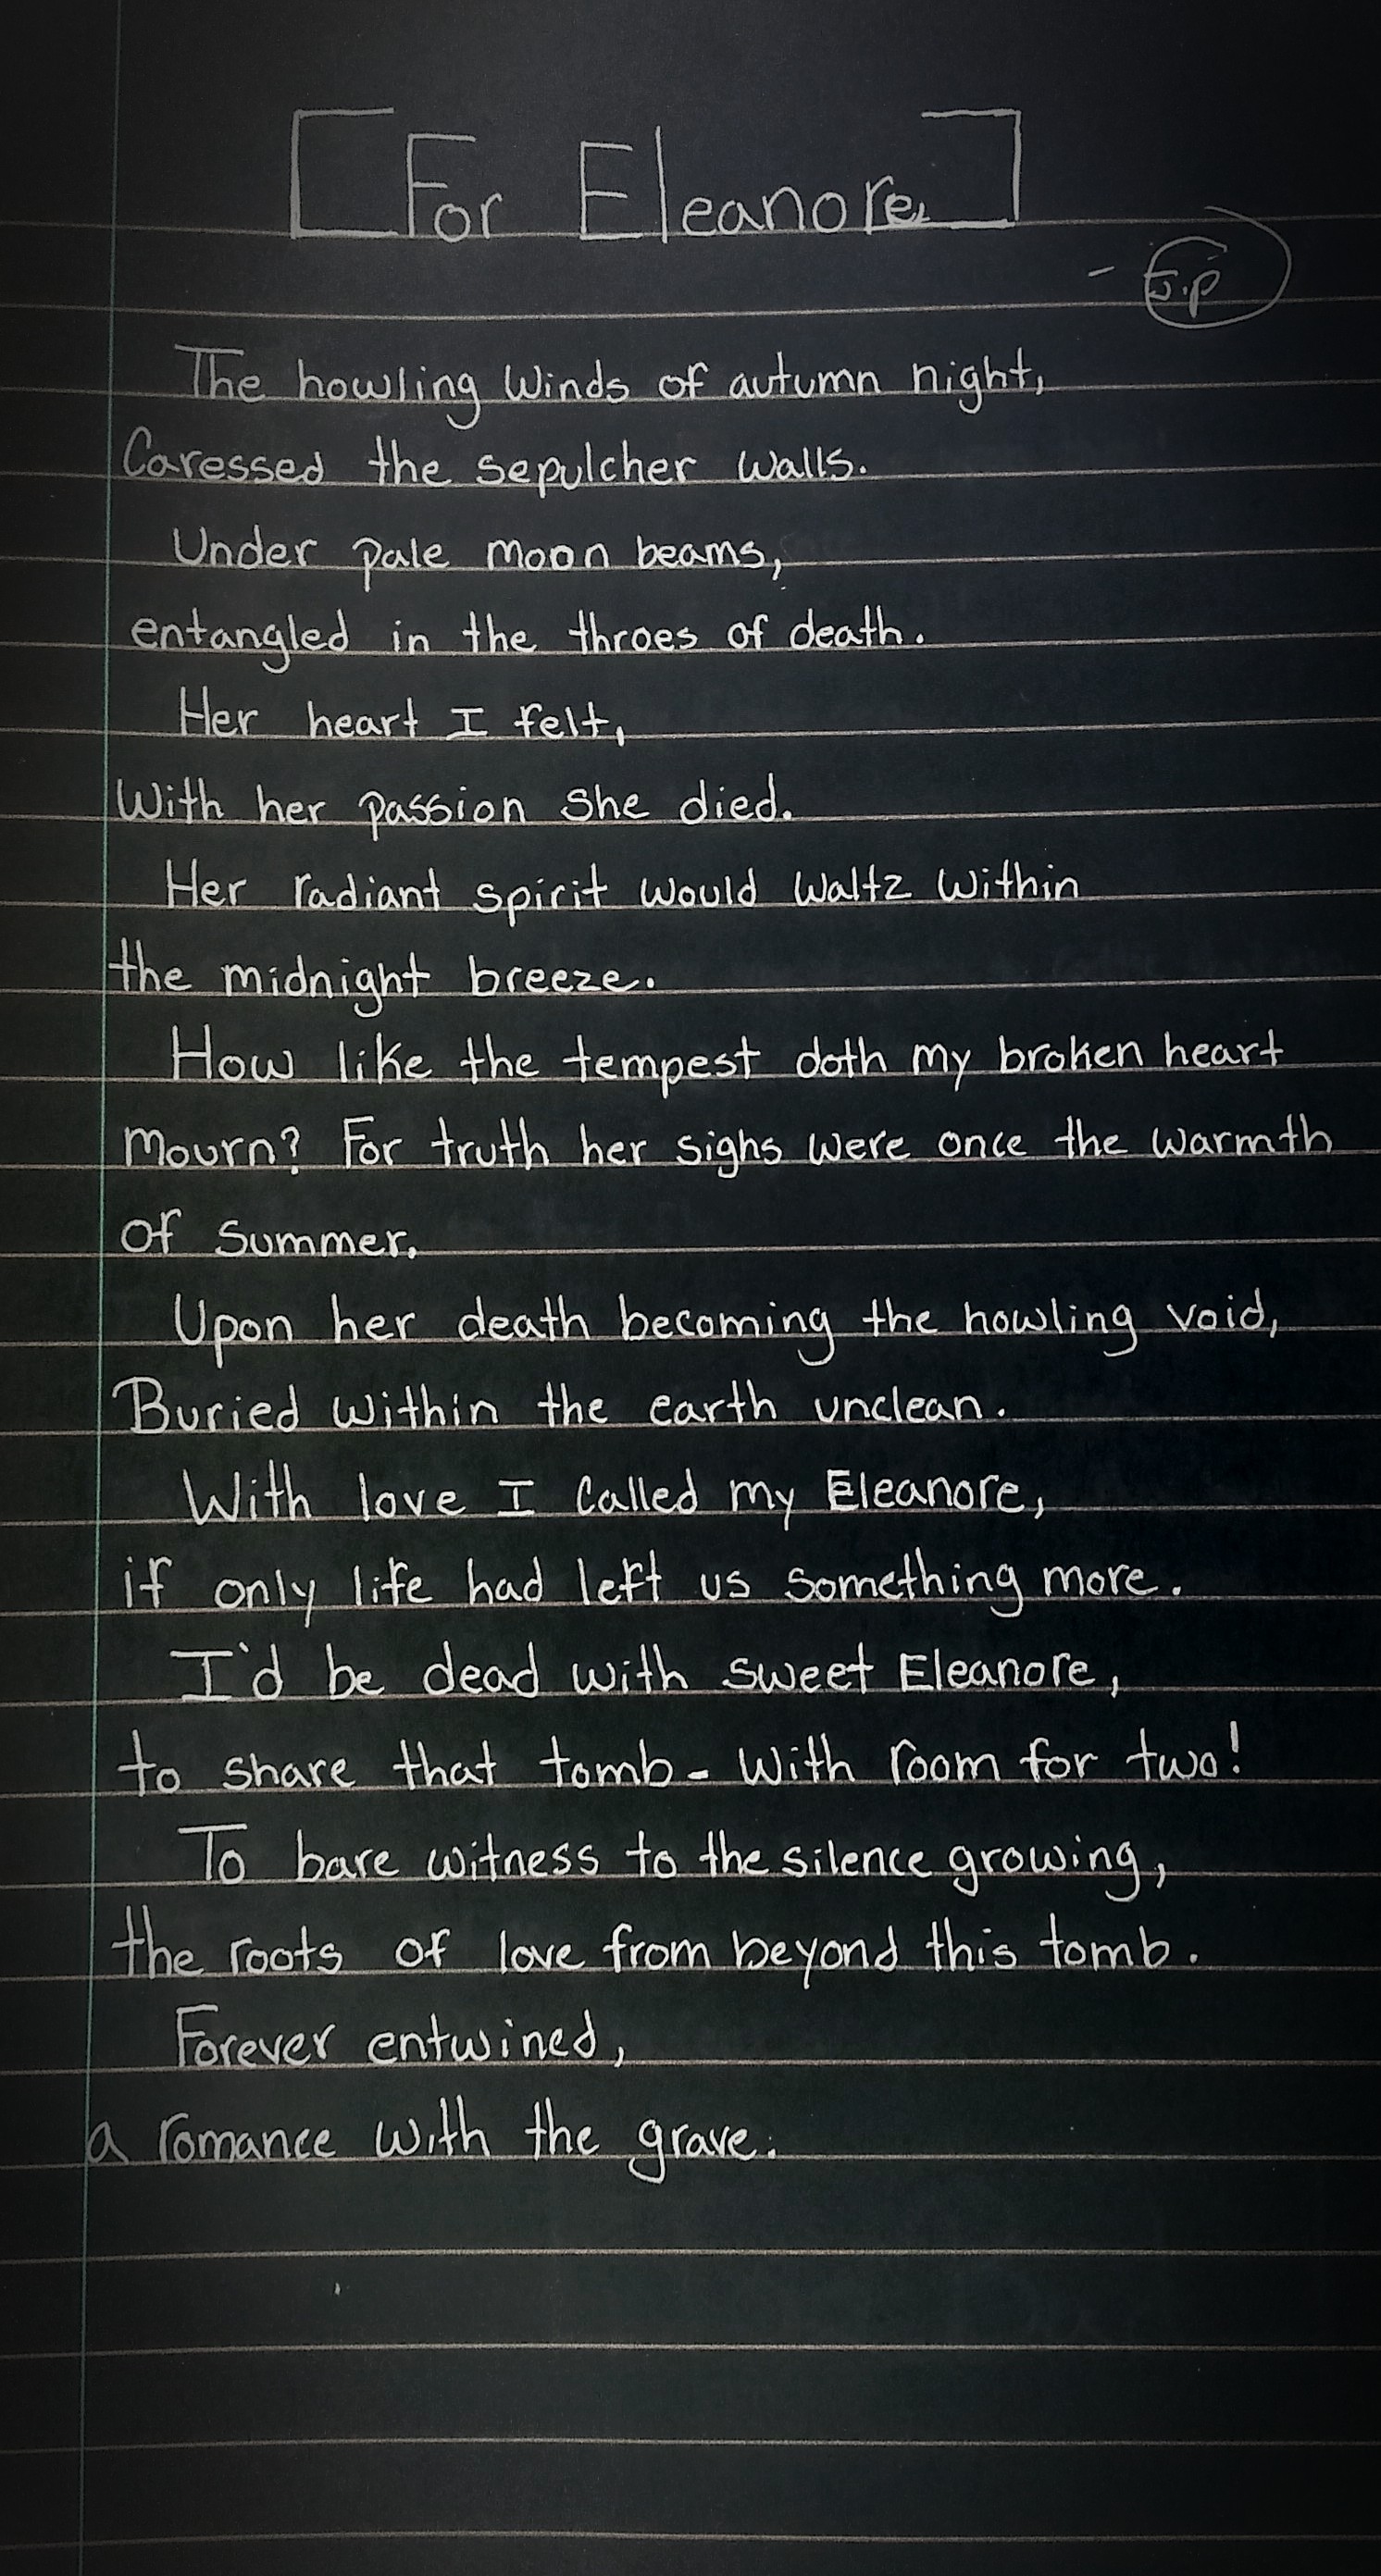 [For Eleanore]
The howling winds of autumn night,
Caressed the sepulcher walls.
Under pale moon beams,
entangled in the throes of death.
Her heart I felt,
With her passion she died.
Her radiant spirit would waltz within
the midnight breeze.
How like the tempest doth my broken heart
mourn? For truth her sighs were once the warmth
of summer.
Upon her death becoming the howling void,
Buried within the earth unclean.
With love I called my Eleanore,
if only life had left us something more.
I'd be dead with sweet Eleanore,
to share that tomb - with room for two!
To bare witness to the silence growing,
the roots of love from beyond this tomb.
Forever entwined,
a romance with the grave.